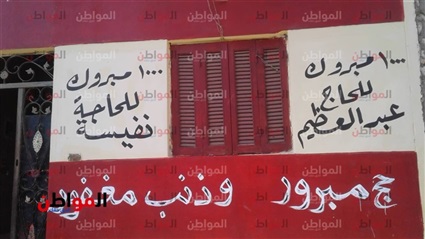 ١٠٠٠ مبروك
للحاج
عبد العظيم
١٠٠٠ مبروك
للحاجة
نفيسة
حج مبرور وذنب مغفور
المواطن